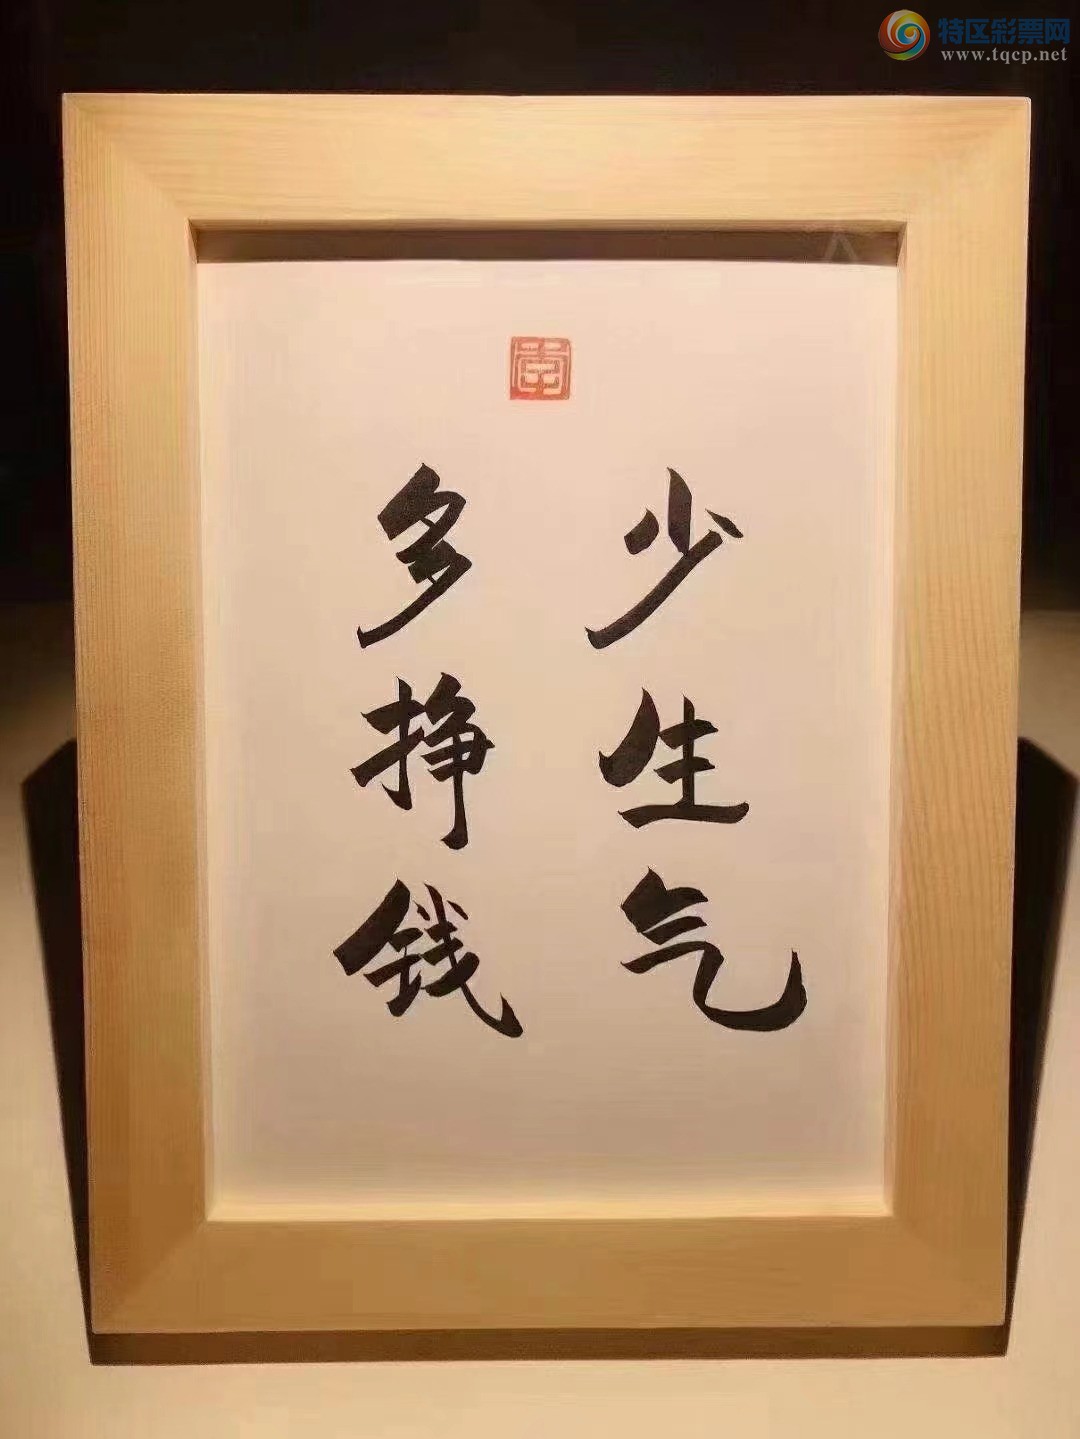 特区彩票网
www.tqcp.net
少生气
多挣钱